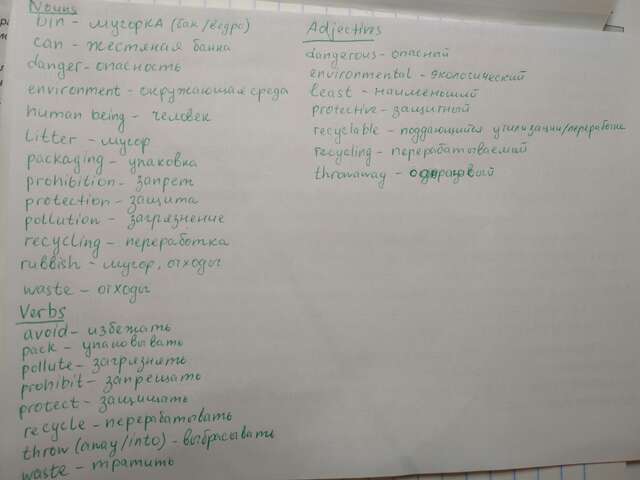 Nouns
bin - мусорка (бак/ведро)
can - жестяная банка
danger - опасность
environment - окружающая среда
human being - человек
litter - мусор
packaging - упаковка
prohibition - запрет
protection - защита
pollution - загрязнение
recycling - переработка
rubbish - мусор, отходы
waste - отходы
Verbs
avoid - избежать
pack - упаковывать
pollute - загрязнять
prohibit - запрещать
protect - защищать
recycle - перерабатывать
throw (away/into) - выбрасывать
waste - тратить
Adjectives
dangerous - опасный
environmental - экологический
least - наименьший
protective - защитный
recyclable - поддающийся утилизации/переработке
recycling - перерабатываемый
throwaway - одноразовый